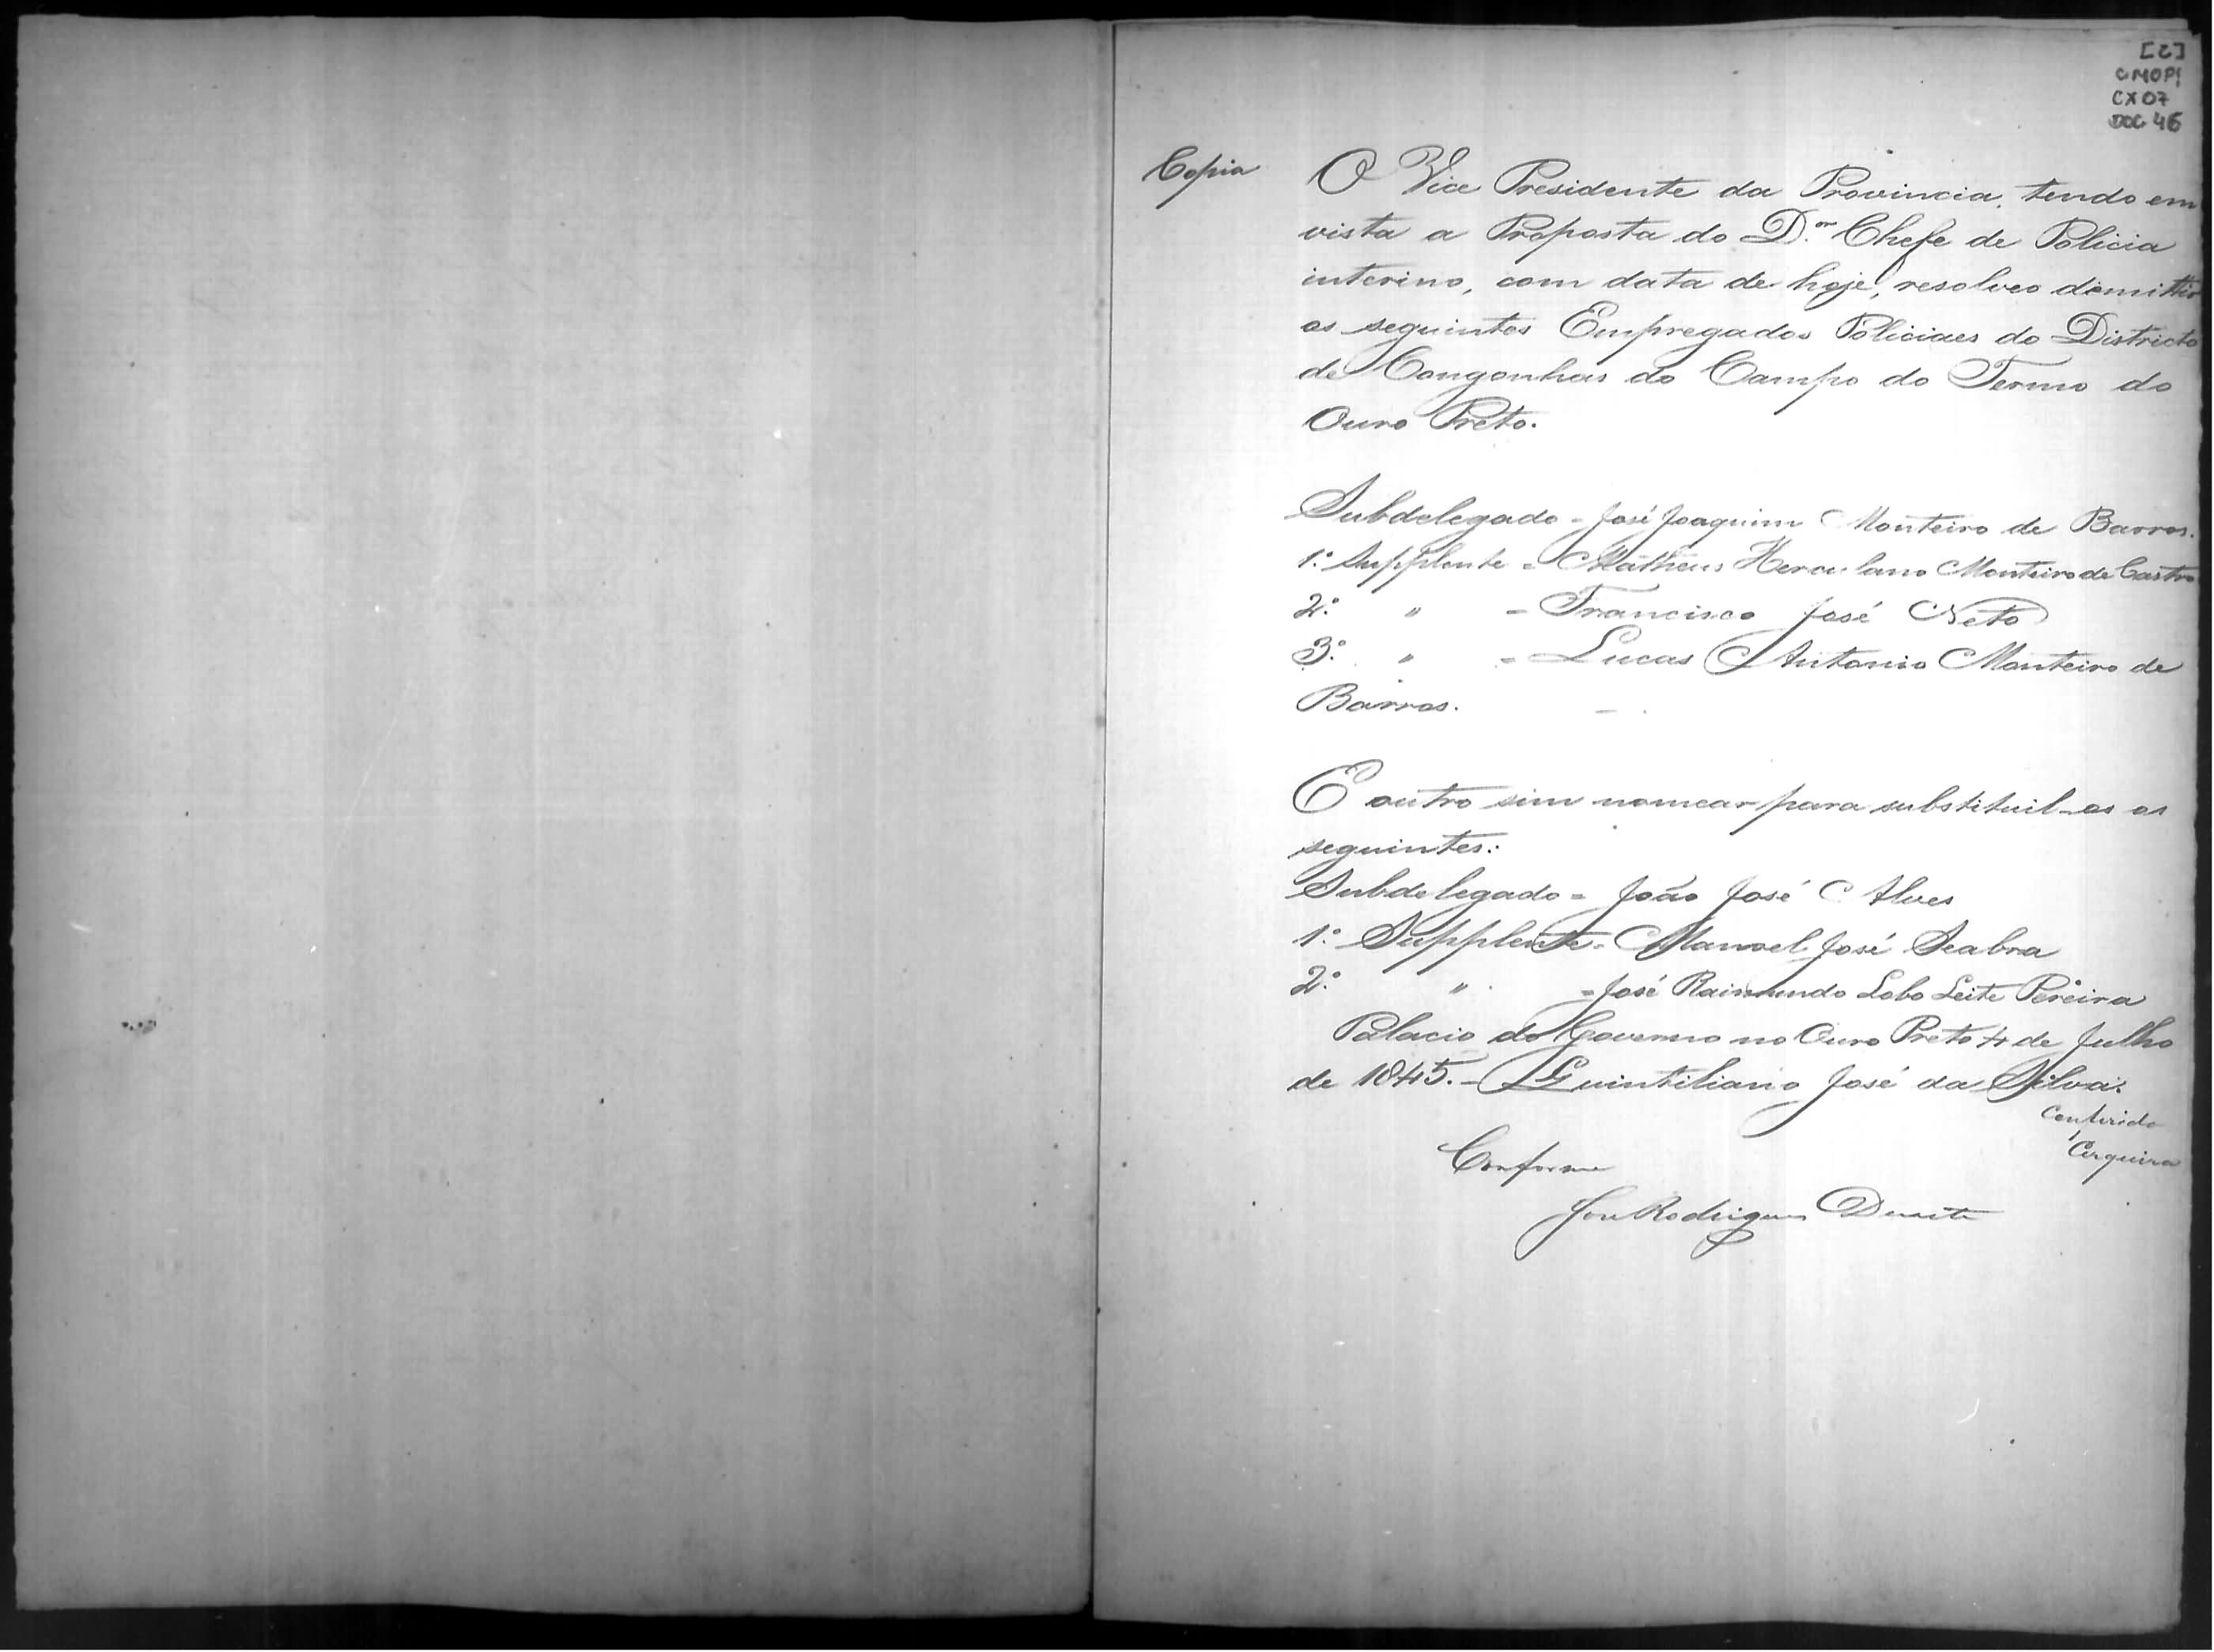 [2]
CMOP!
CX 07
DOC 46
Copia
O Vice Presidente da Provincia, tendo em
vista a Proposta do D.or Chefe de Policia
interino, com data de hoje, resolveo dimittir
os seguintes Empregados Policiaes do Districto
de Congonhas do Campo do Termo do
Ouro Preto.
Subdelegado = José Joaquim Monteiro de Barros.
1.º Supplente = Matheus Herculano Monteiro de Castro
2.º " = Francisco José Neto
3.º " = Lucas Antonio Monteiro de
Barros.
E outro sim nomear para substituil-os os
seguintes:
Subdelegado = João José Alves
1.º Supplente = Manoel José Seabra
2.º " = José Raimundo Lobo Leite Pereira
Palacio do Governo no Ouro Preto 4 de Julho
de 1845. - Quintiliano José da Silva.
Conferido
Cerqueira
Conforme
José Rodrigues Duarte